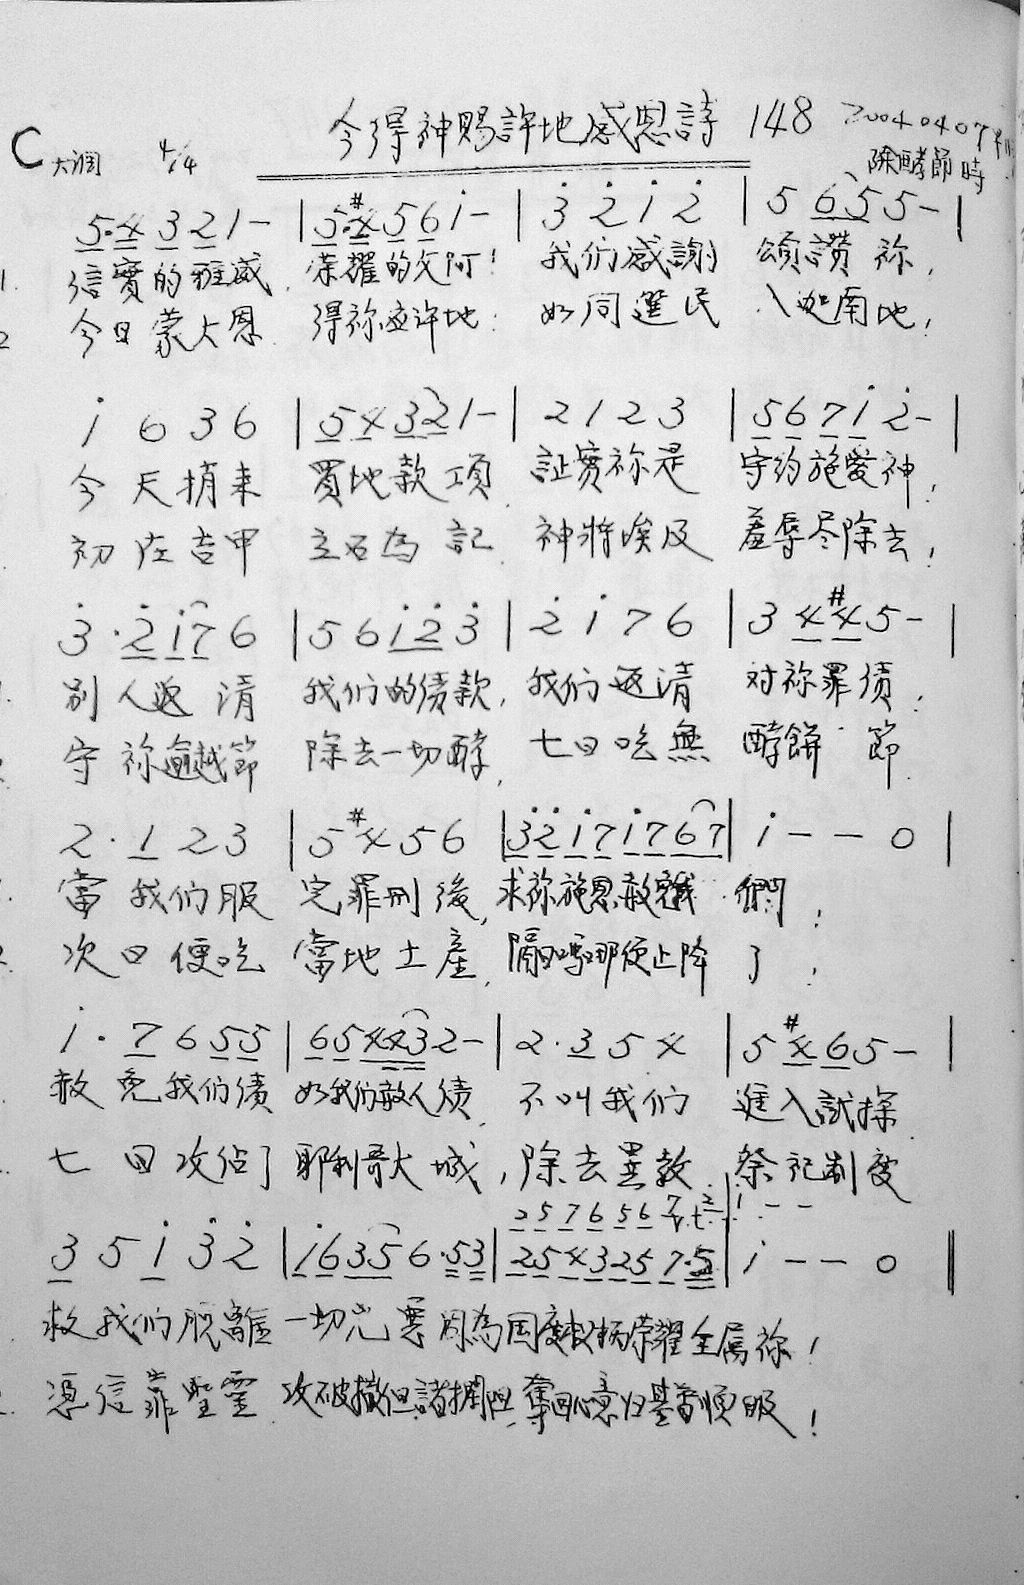 今得神賜許地感恩詩 148 20040407
C大調 4/4 除酵節時
5·4 3 2 1 - | 5·#4 5 6 i - | 3̇ 2̇ i 2̇ | 5 6 5 5 - |
1. 信實的雅威, 榮耀的父阿! 我们感謝 頌讚祢,
2 今日蒙大恩 得祢应许地: 如同選民 入迦南地!
i 6 3 6 | 5 4 3 2 1 - | 2 1 2 3 | 5 6 7 i 2̇ - |
今天捎来 買地款項, 証實祢是 守约施愛神!
初在吉甲 立石为記 神將埃及 羞辱尽除去!
3̇ · 2̇ i 7 6 | 5 6 i 2̇ 3̇ | 2̇ i 7 6 | 3 4 #4 5 - |
别人返清 我们的债款, 我们返清 对祢罪债,
守祢逾越節 除去一切酵, 七日吃無 酵餅節.
2 · 1 2 3 | 5 #4 5 6 | 3̇ 2̇ i 7 i 7 6 7 | i - - 0 |
當我们服 完罪刑後, 求祢施恩赦 們!
次日便吃 當地土產, 嗎哪便止降了!
i · 7 6 5 5 | 6 5 4 4 3 2 - | 2 · 3 5 4 | 5 #4 6 5 - |
赦免我们债 如我们赦人债, 不叫我们 進入試探
七日攻佔了 耶利哥大城, 除去異教 祭祀制度
2 5 7 6 5 6 7 2̇ | i - -
3 5 i 3̇ 2̇ | i 6 3 5 6 · 5 3 | 2 5 4 3 2 5 7 · 5 | i - - 0 ‖
救我们脱離 一切兇惡 因為国度权柄榮耀全屬祢!
憑信靠聖靈 攻破撒但諸攔阻, 奪回心意归基督順服!